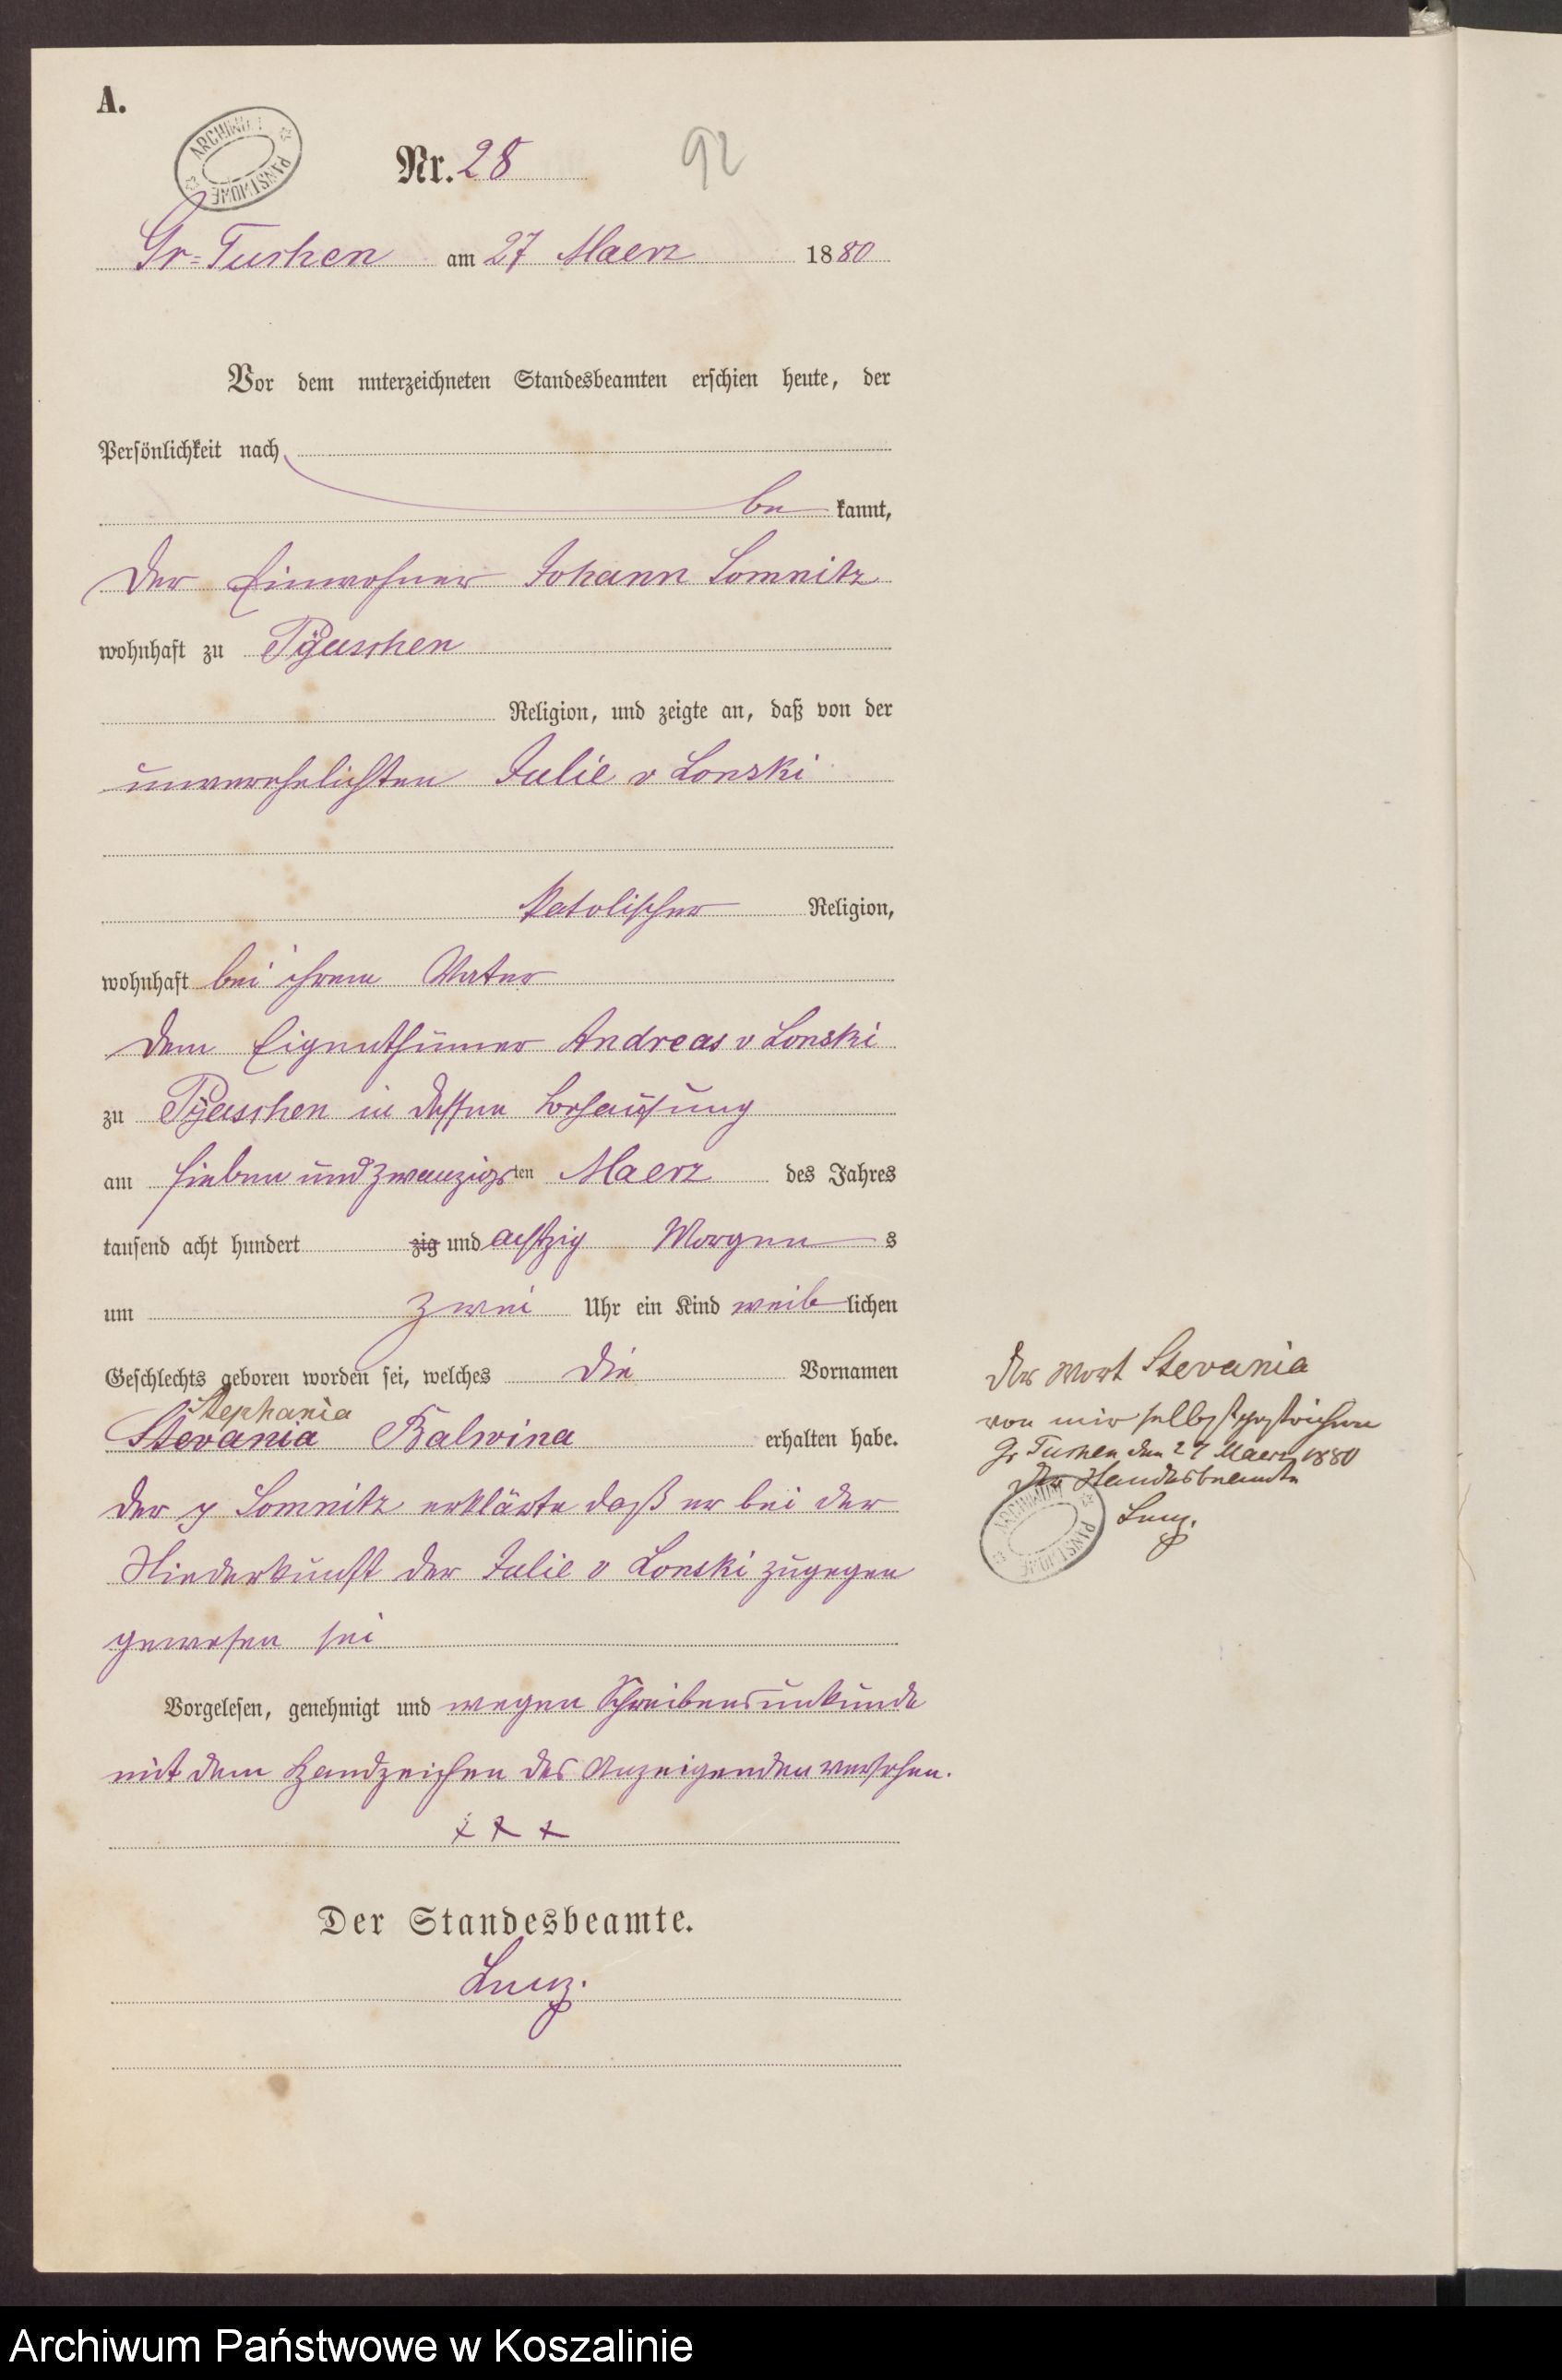 A.
ARCHIWUM PAŃSTWOWE
Nr. 28
92
Gr=Tuchen am 27 Maerz 1880
Vor dem unterzeichneten Standesbeamten erschien heute, der
Persönlichkeit nach
be kannt,
der Einwohner Johann Somnitz
wohnhaft zu Pÿaschen
Religion, und zeigte an, daß von der
unverehelichten Julie v Lonski
katolischer Religion,
wohnhaft bei ihrem Vater
dem Eigenthümer Andreas v Lonski
zu Pÿaschen in dessen Behausung
am sieben und zwanzigsten Maerz des Jahres
tausend acht hundert zig und achtzig Morgen s
um zwei Uhr ein Kind weiblichen
Geschlechts geboren worden sei, welches die Vornamen
Stephania
Stevania Balwina erhalten habe.
der p Somnitz erklärte daß er bei der
Niederkunft der Julie v Lonski zugegen
gewesen sei
Vorgelesen, genehmigt und wegen Schreibensunkunde
mit dem Handzeichen des Anzeigenden versehen.
x x x
Der Standesbeamte.
Das Wort Stevania
von mir selbst gestrichen
Gr Tuchen den 27 Maerz 1880
Der Standesbeamte
ARCHIWUM PAŃSTWOWE
Archiwum Państwowe w Koszalinie